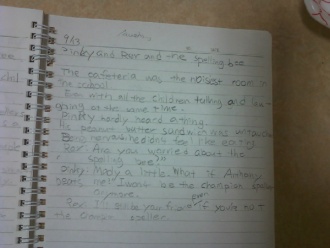 Pinky and Rex and the spelling bee
The cafeteria was the noisest room in
the school
Even with all the children talking and lau-
ghing at the same time.
Pinky hardly heard a thing.
His peanut butter sandwich was untouched
Being nerves he didn't feel like eating
Rex: Are you worried about the
spelling bee"
Pinky: Mady a little. What if Anthony
beats me! I wont be the champion speller
anymore.
Rex: I'll still be your friend if you're not
the speller